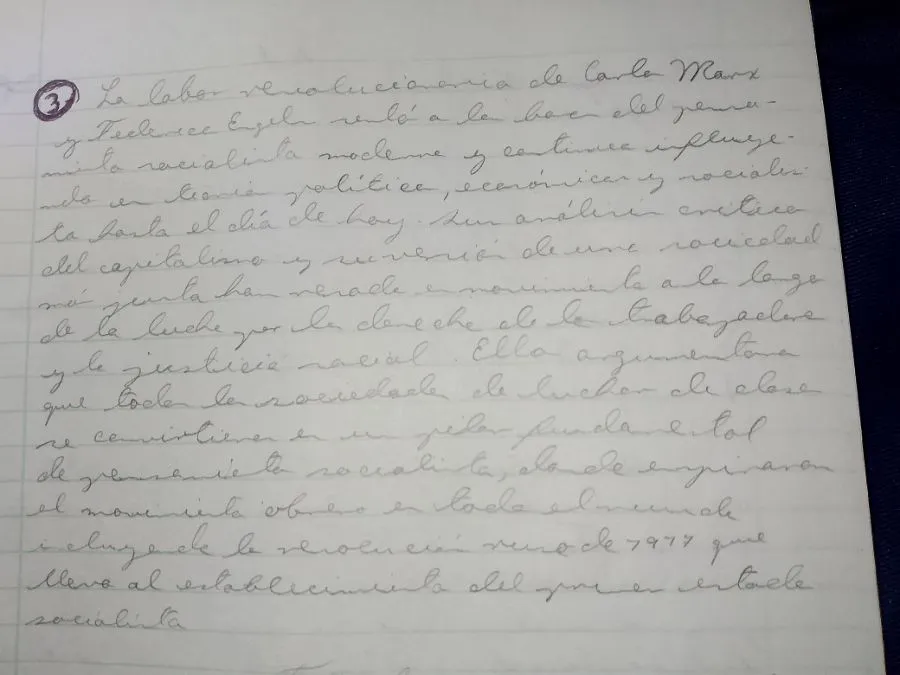 ③ La labor revolucionaria de Carlo Marx
y Federico Engels sentó a la base del pensa-
miento socialista moderno y continua influye-
ndo en teoria política, económicas y sociales
ta hasta el día de hoy. Sus análisis critico
del capitalismo y su versión de una sociedad
más justa han en movimiento a lo largo
de la lucha por los derecho de lo trabajadores
y la justicia social. Ello argumentaron
que todas la sociedades de luchas de clase
se convirtieron en un pilar fundamental
de pensamiento socialista, donde inspiraron
el movimiento obrero en todo el mundo
incluyendo la revolución ruso de 1917 que
llevo al establecimiento del primer estado
socialista